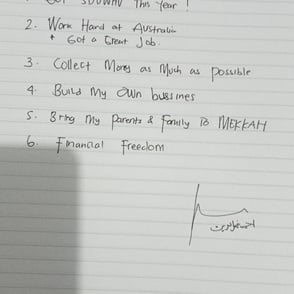 This Year !
2. Work Hard at Australia
+ Got a Great Job.
3. Collect Money as Much as possible
4. Build My Own bussines
5. Bring My Parents & Family To MEKKAH
6. Financial Freedom